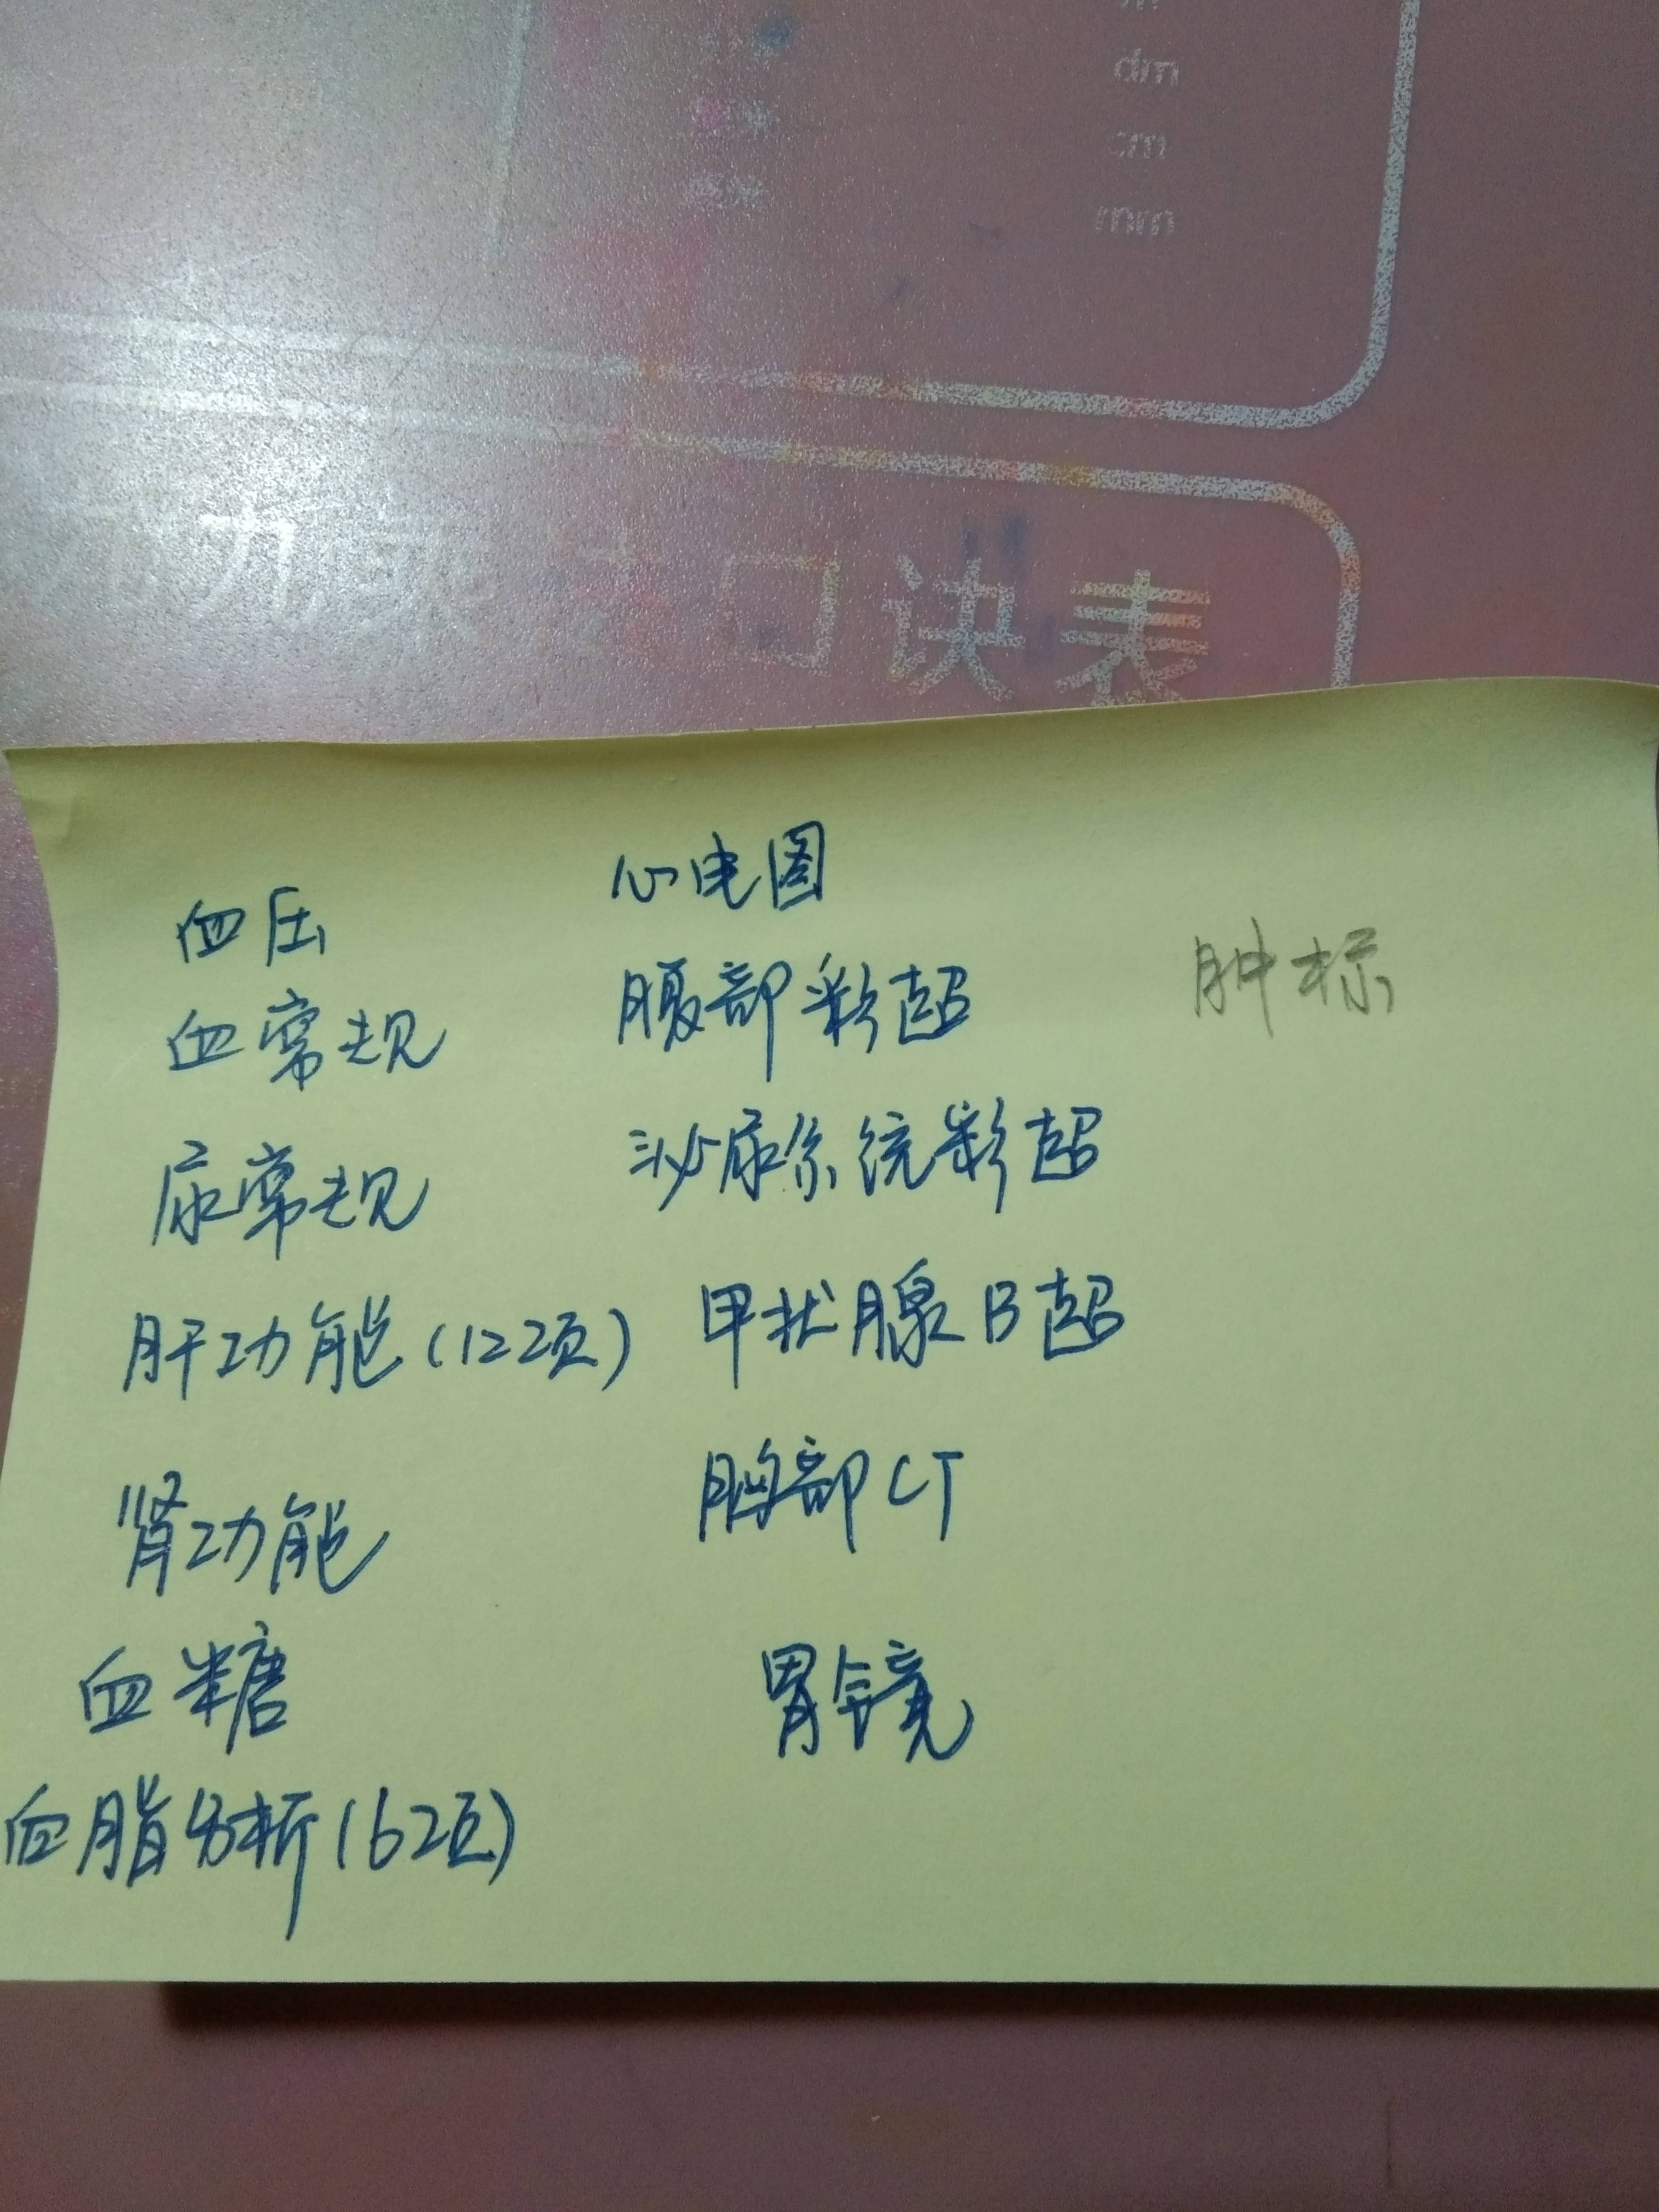 dm
cm
mm
口诀表
血压
血常规
尿常规
肝功能(12项)
肾功能
血糖
血脂分析(6项)
心电图
腹部彩超
泌尿系统彩超
甲状腺B超
胸部CT
胃镜
肿标